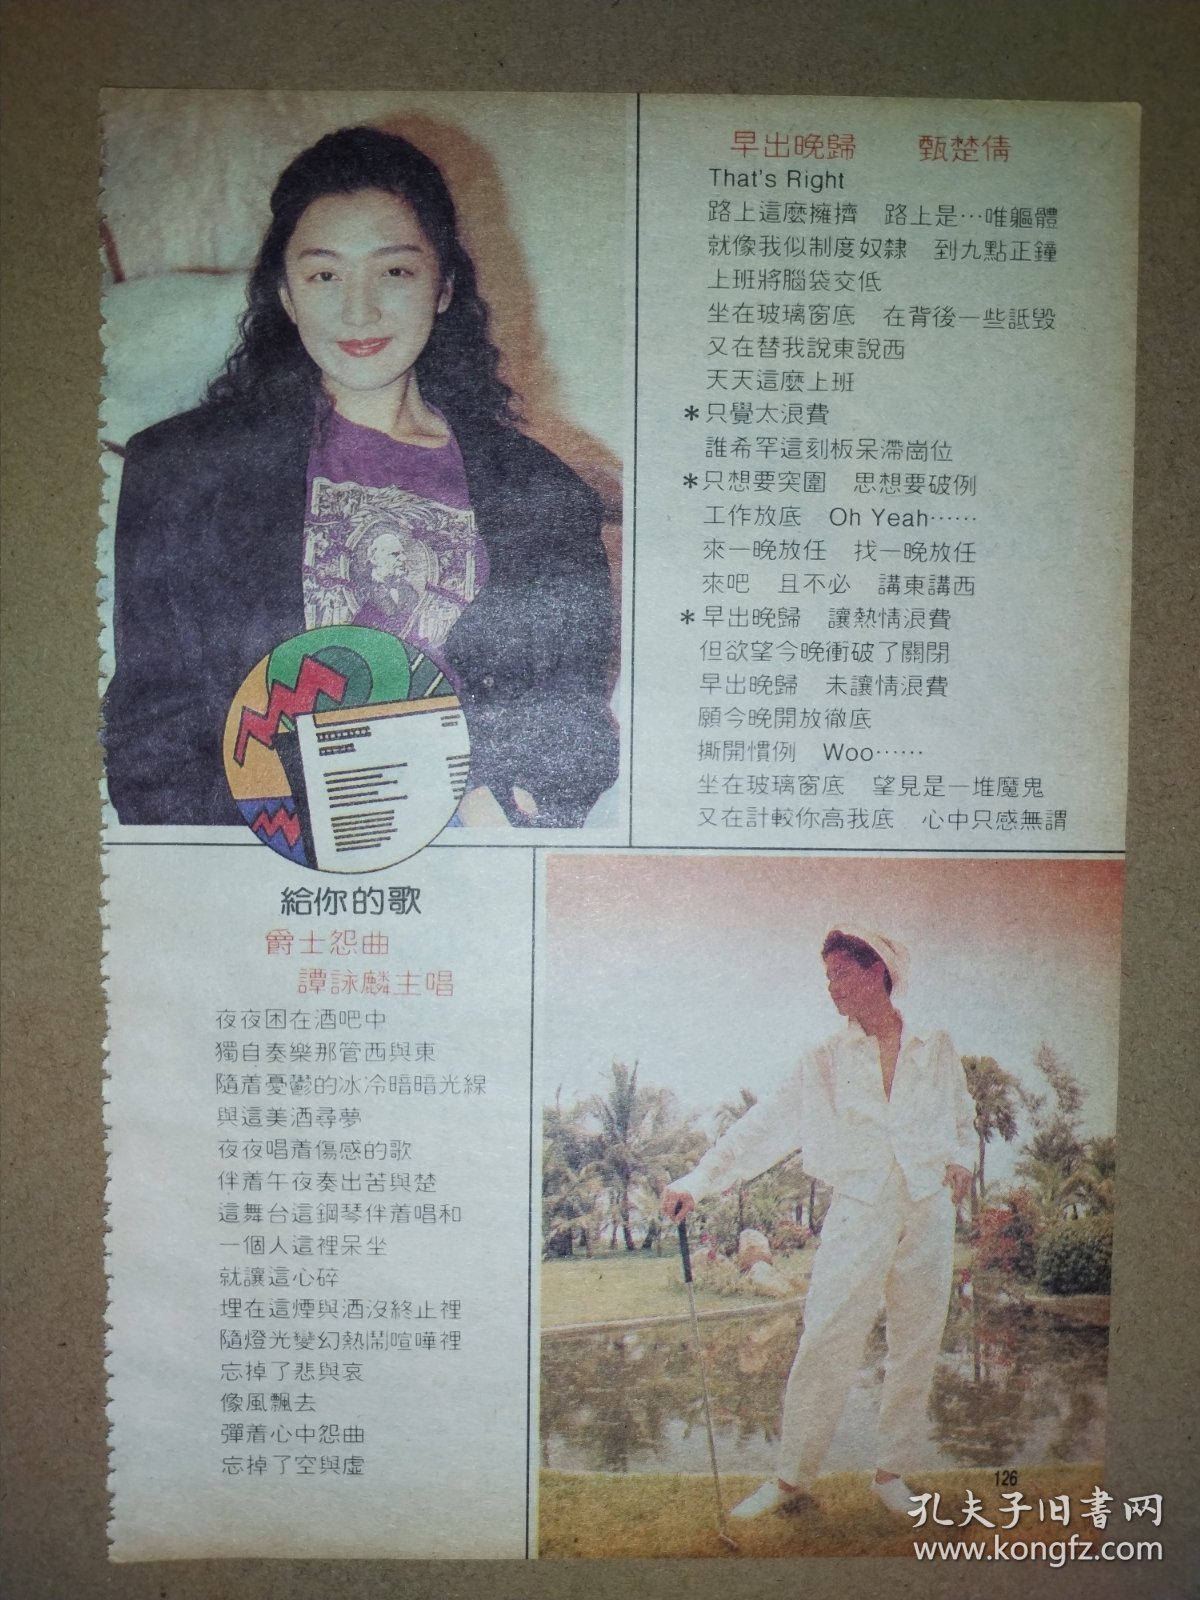 早出晚歸　　甄楚倩
That's Right
路上這麼擁擠　路上是…唯軀體
就像我似制度奴隸　到九點正鐘
上班將腦袋交低
坐在玻璃窗底　在背後一些詆毀
又在替我說東說西
天天這麼上班
＊只覺太浪費
誰希罕這刻板呆滯崗位
＊只想要突圍　思想要破例
工作放底　Oh Yeah……
來一晚放任　找一晚放任
來吧　且不必　講東講西
＊早出晚歸　讓熱情浪費
但欲望今晚衝破了關閉
早出晚歸　未讓情浪費
願今晚開放徹底
撕開慣例　Woo……
坐在玻璃窗底　望見是一堆魔鬼
又在計較你高我底　心中只感無謂
給你的歌
爵士怨曲
譚詠麟主唱
夜夜困在酒吧中
獨自奏樂那管西與東
隨着憂鬱的冰冷暗暗光線
與這美酒尋夢
夜夜唱着傷感的歌
伴着午夜奏出苦與楚
這舞台這鋼琴伴着唱和
一個人這裡呆坐
就讓這心碎
埋在這煙與酒沒終止裡
隨燈光變幻熱鬧喧嘩裡
忘掉了悲與哀
像風飄去
彈着心中怨曲
忘掉了空與虛
126
孔夫子旧书网
www.kongfz.com